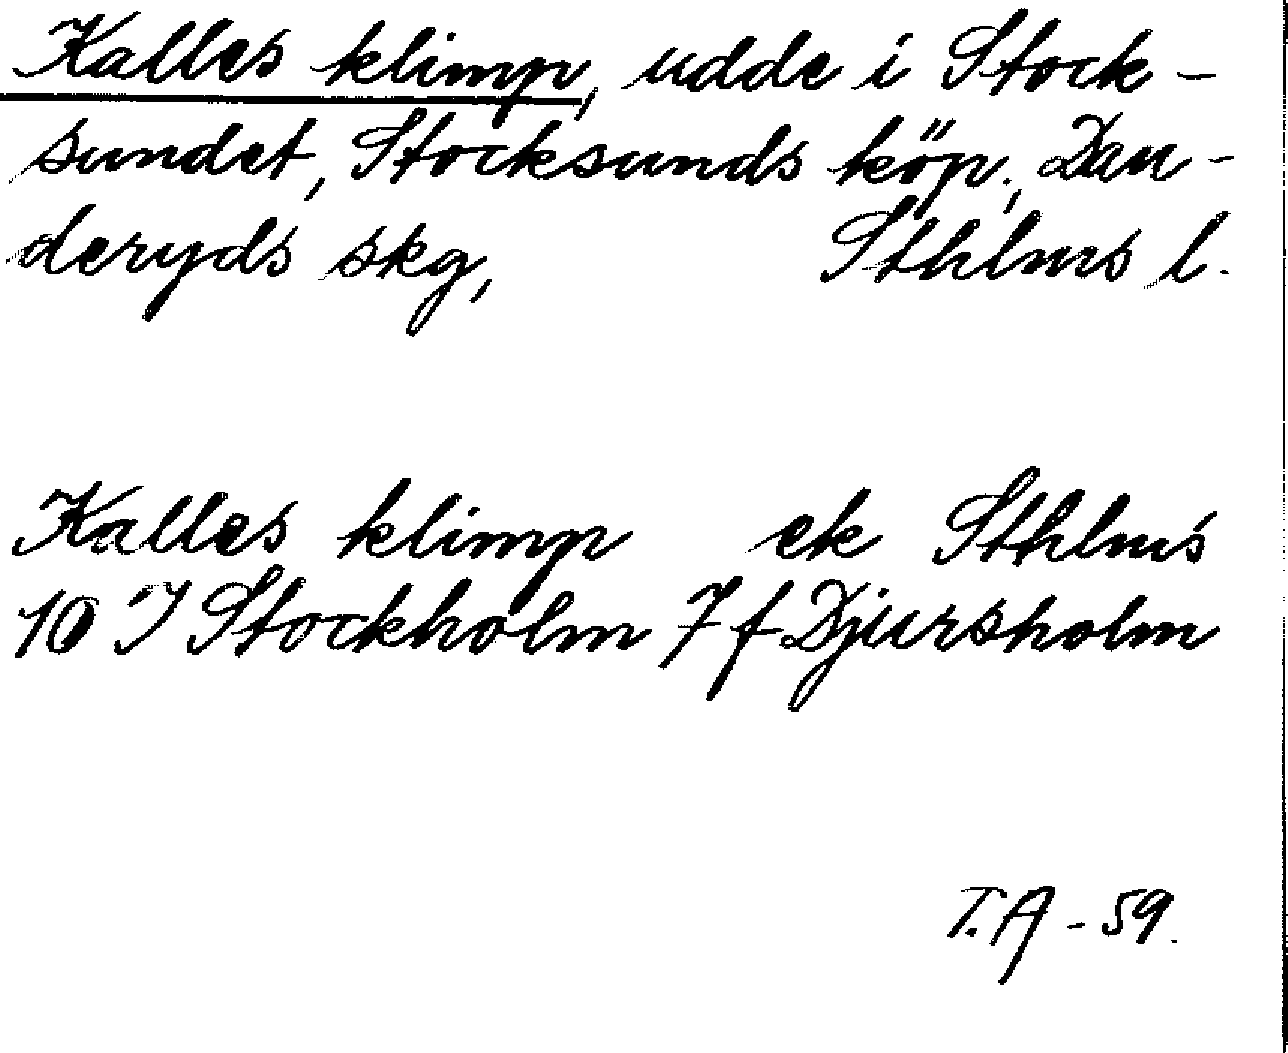 Kalles klimp, udde i Stock-
sundet, Stocksunds köp., Dan-
deryds skg, Sthlms l.
Kalles klimp ek Sthlms
10 I Stockholm 7 f Djursholm
T.A - 59.